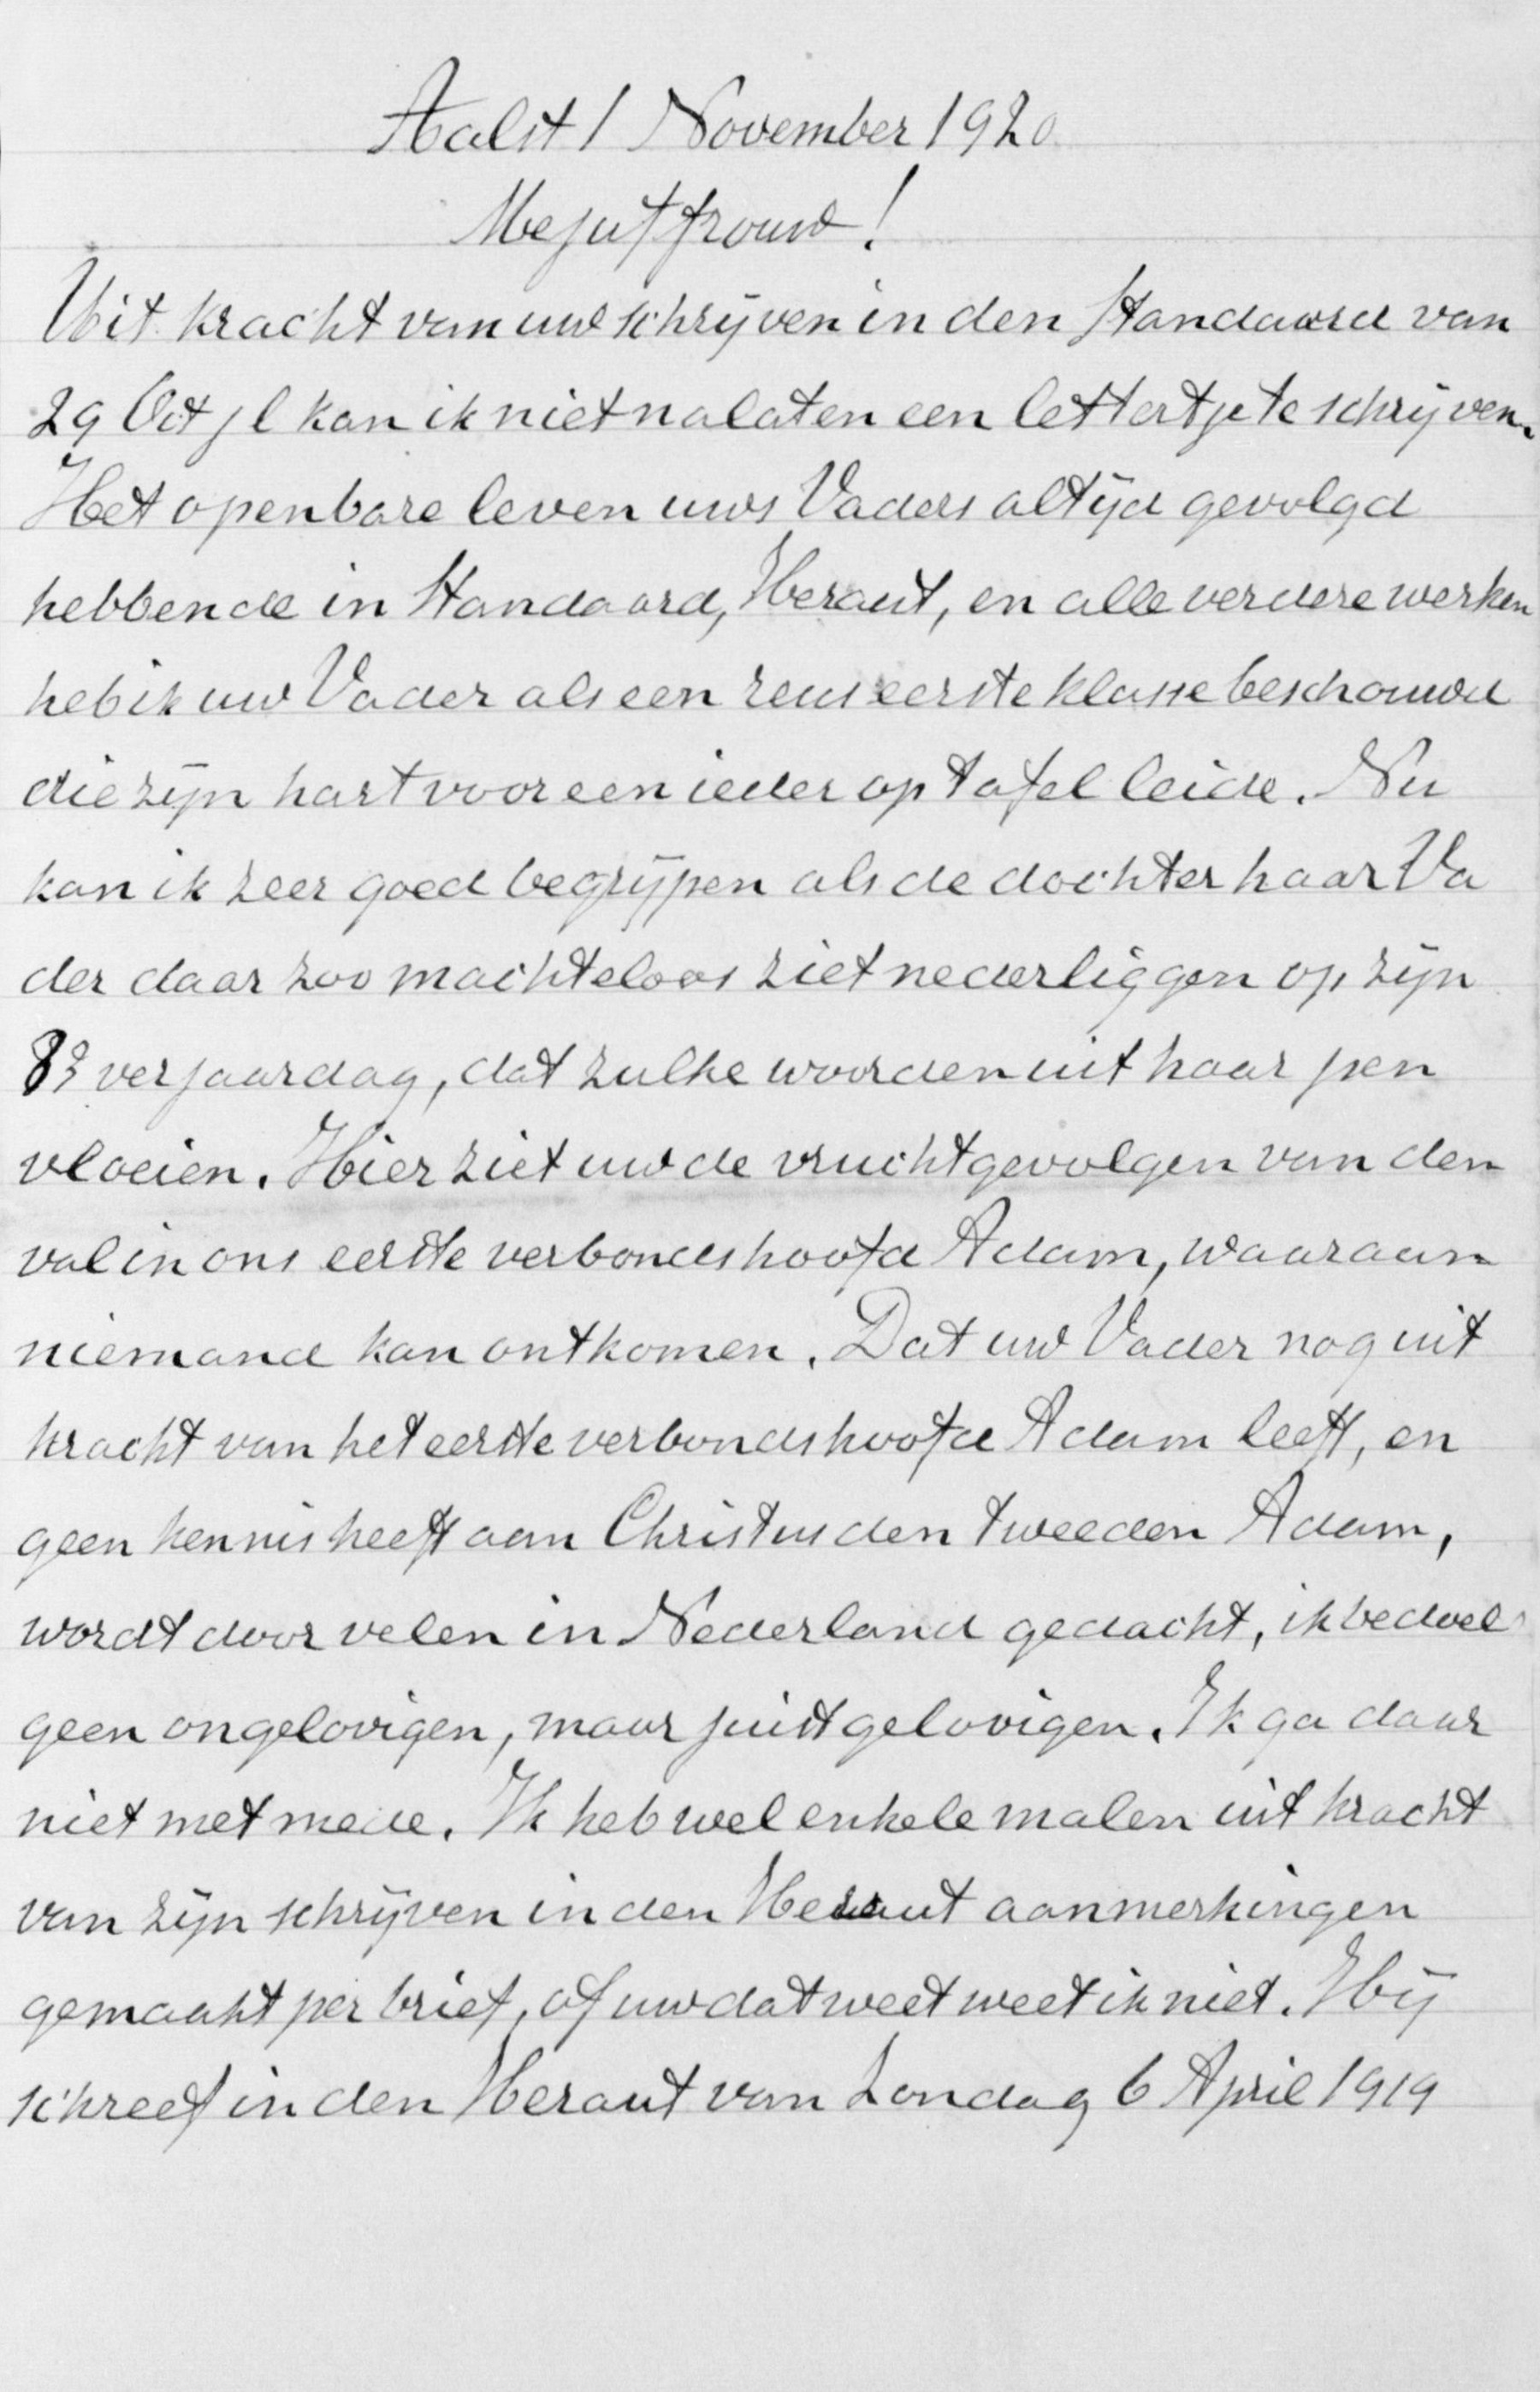 Aalst 1 November 1920
Mejuffrouw!
Uit kracht van uw schrijven in den Standaard van
29 Oct jl kan ik niet nalaten een lettertje te schrijven.
Het openbare leven uws Vaders altijd gevolgd
hebbende in Standaard, Heraut, en alle verdere werken
heb ik uw Vader als een reus eerste klasse beschouwd
die zijn hart voor een ieder op tafel leide. Nu
kan ik zeer goed begrijpen als de dochter haar Va
der daar zoo machteloos ziet nederliggen op zijn
83 verjaardag, dat zulke woorden uit haar pen
vloeien. Hier ziet uw de vruchtgevolgen van den
val in ons eerste verbondshoofd Adam, waaraan
niemand kan ontkomen. Dat uw Vader nog uit
kracht van het eerste verbondshoofd Adam leeft, en
geen kennis heeft aan Christus den tweeden Adam,
wordt door velen in Nederland gedacht, ik bedoel
geen ongelovigen, maar juist gelovigen. Ik ga daar
niet met mede. Ik heb wel enkele malen uit kracht
van zijn schrijven in den Heraut aanmerkingen
gemaakt per brief, of uw dat weet weet ik niet. Hij
schreef in den Heraut van Zondag 6 April 1919